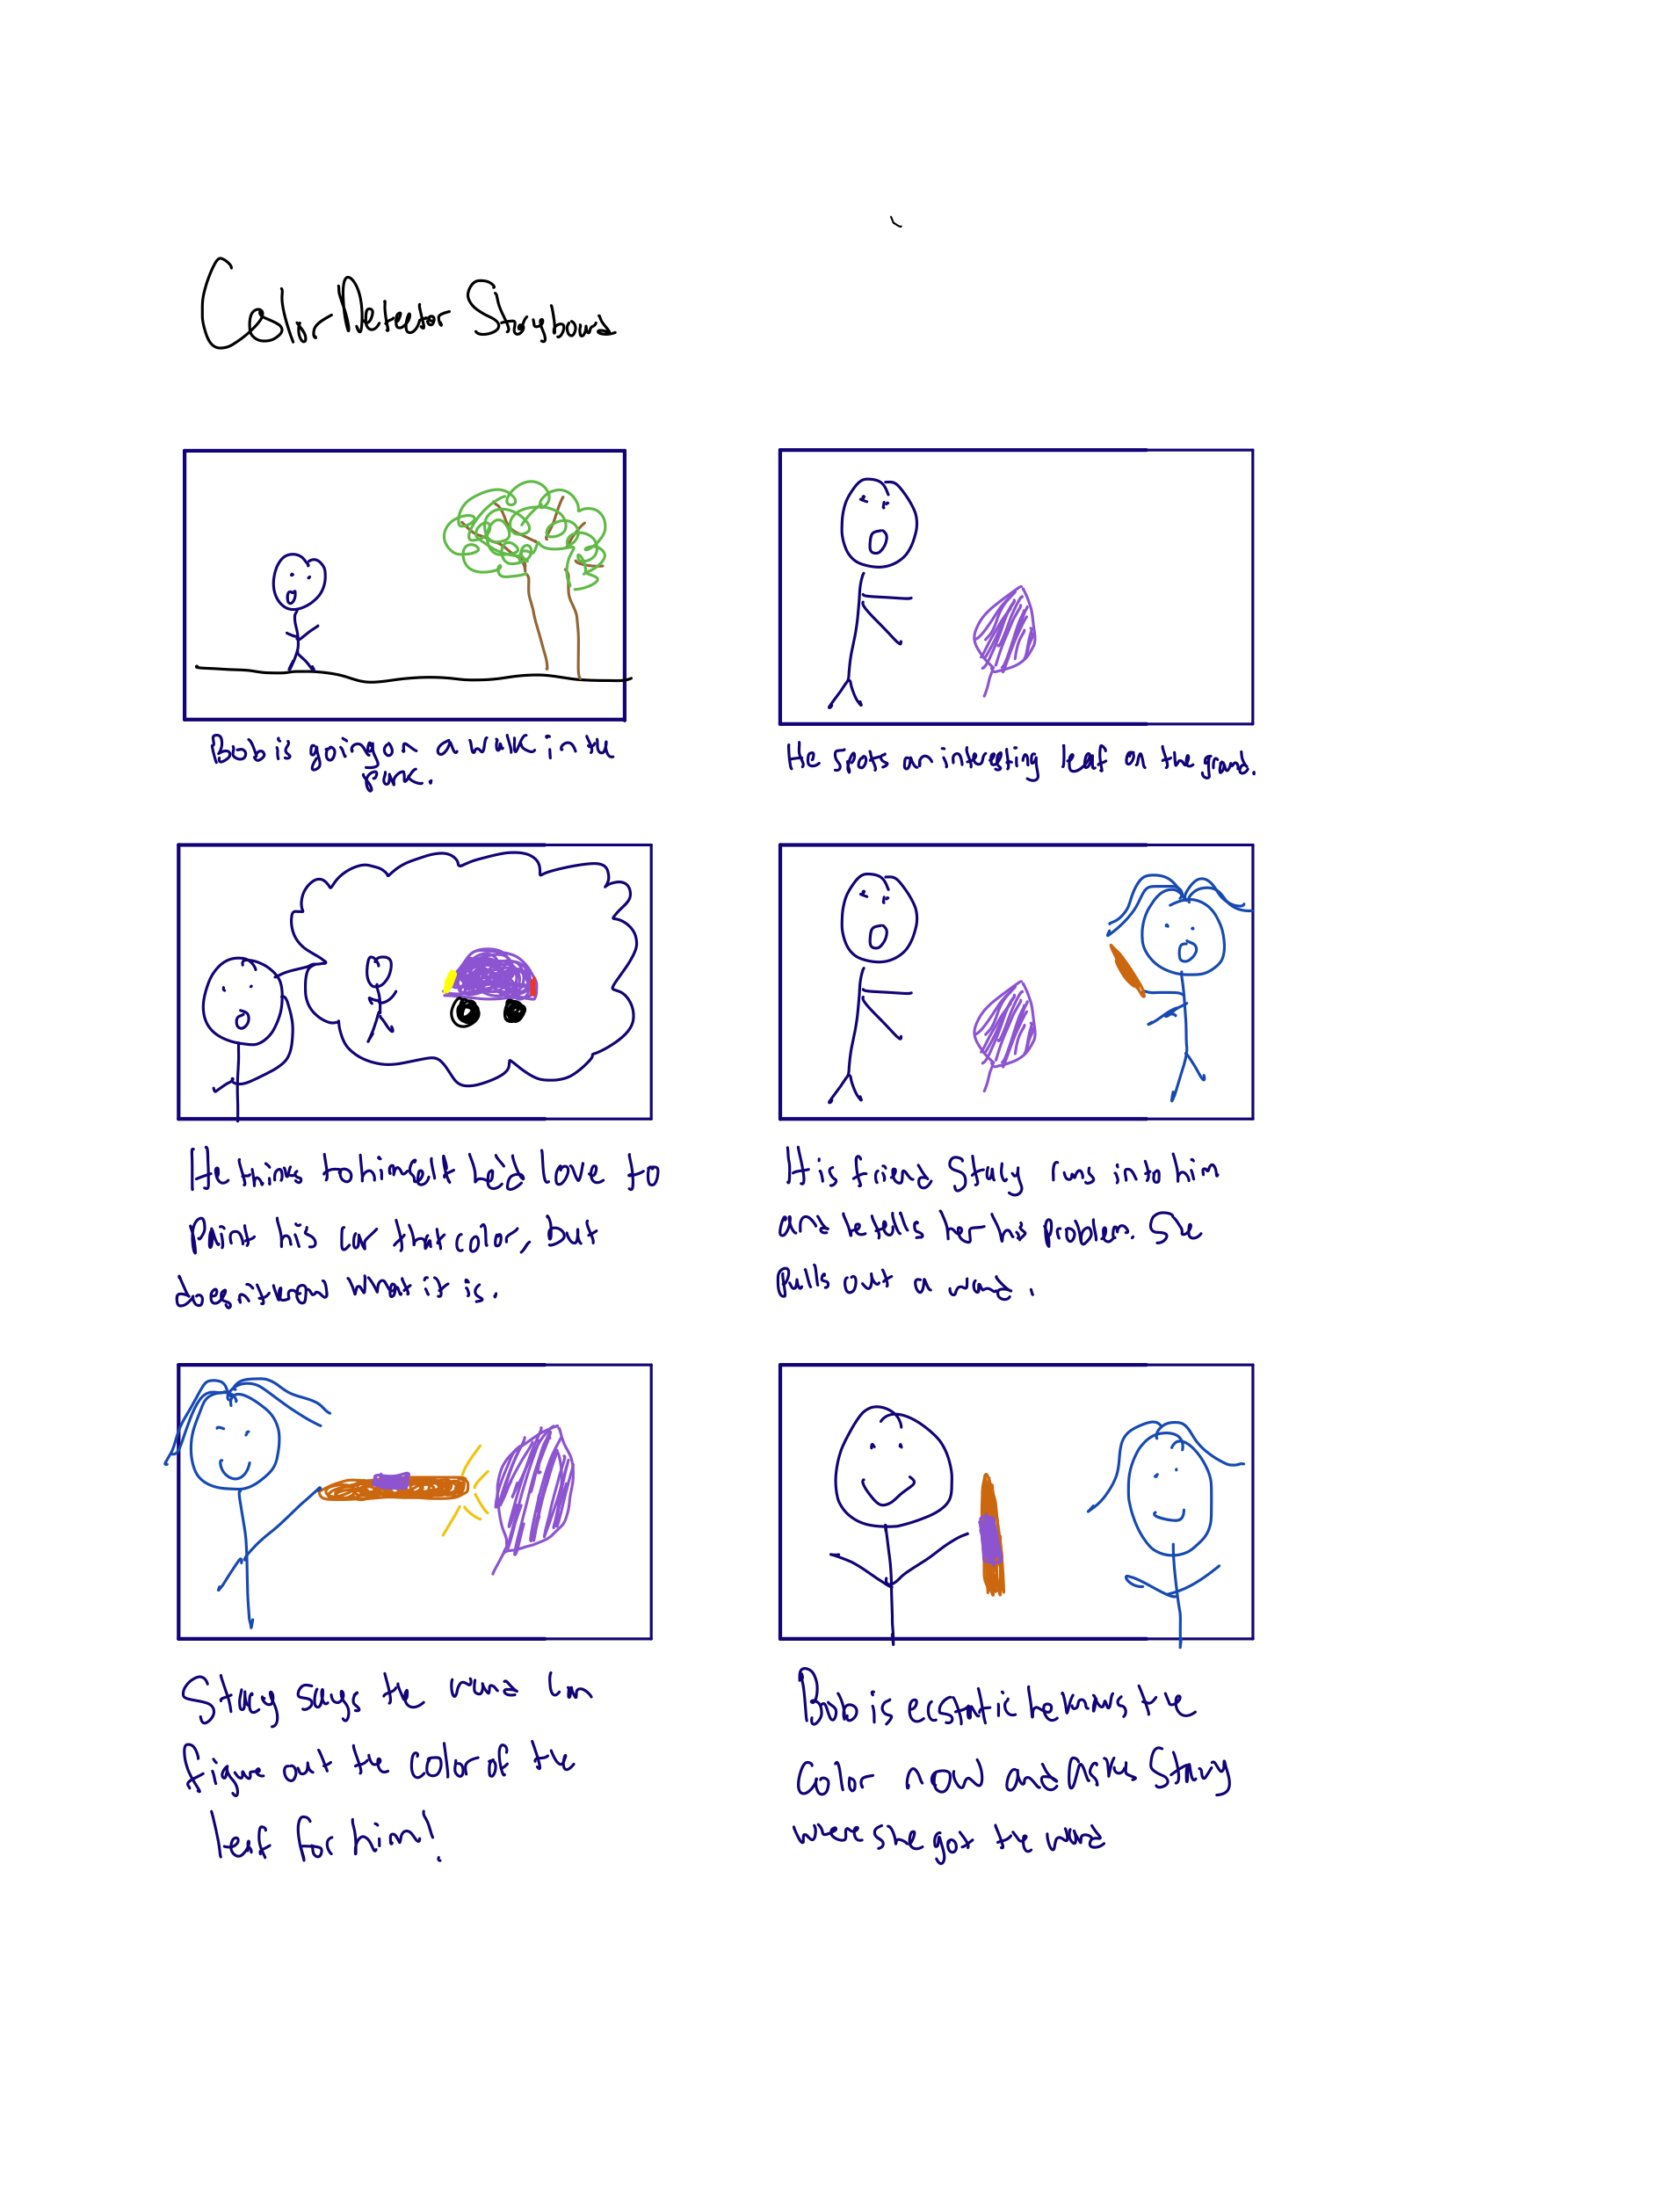 Color Detector Storyboard
Bob is going on a walk in the
park.
He spots an interesting leaf on the ground.
He thinks to himself he'd love to
paint his car that color, but
doesn't know what it is.
His friend Stacy runs into him
and he tells her his problem. She
pulls out a wand.
Stacy says the wand can
figure out the color of the
leaf for him!
Bob is ecstatic he knows the
color now and asks Stacy
where she got the wand